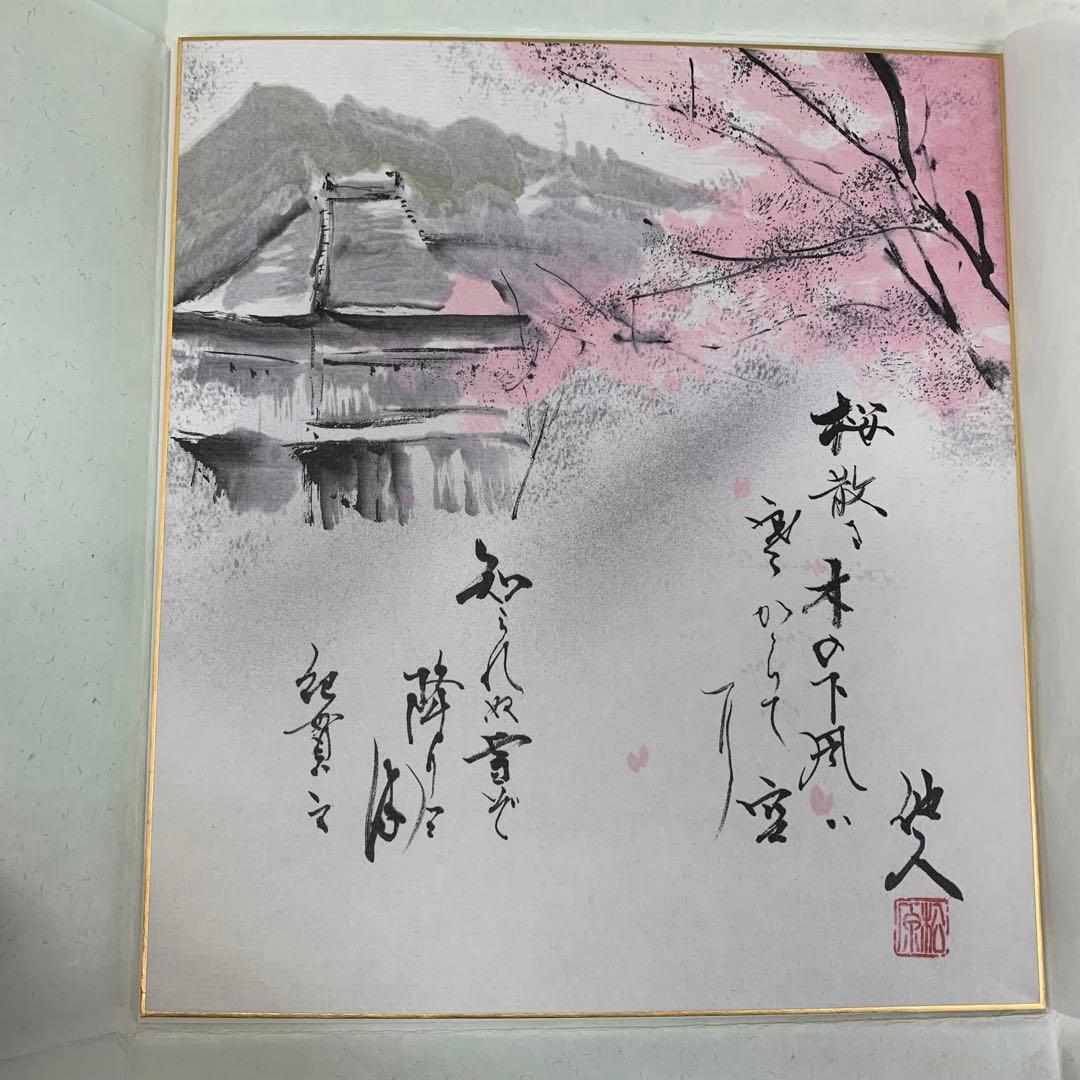 桜散る木の下風は
寒からで空
に
知られぬ雪ぞ
降りける
紀貫之
松原